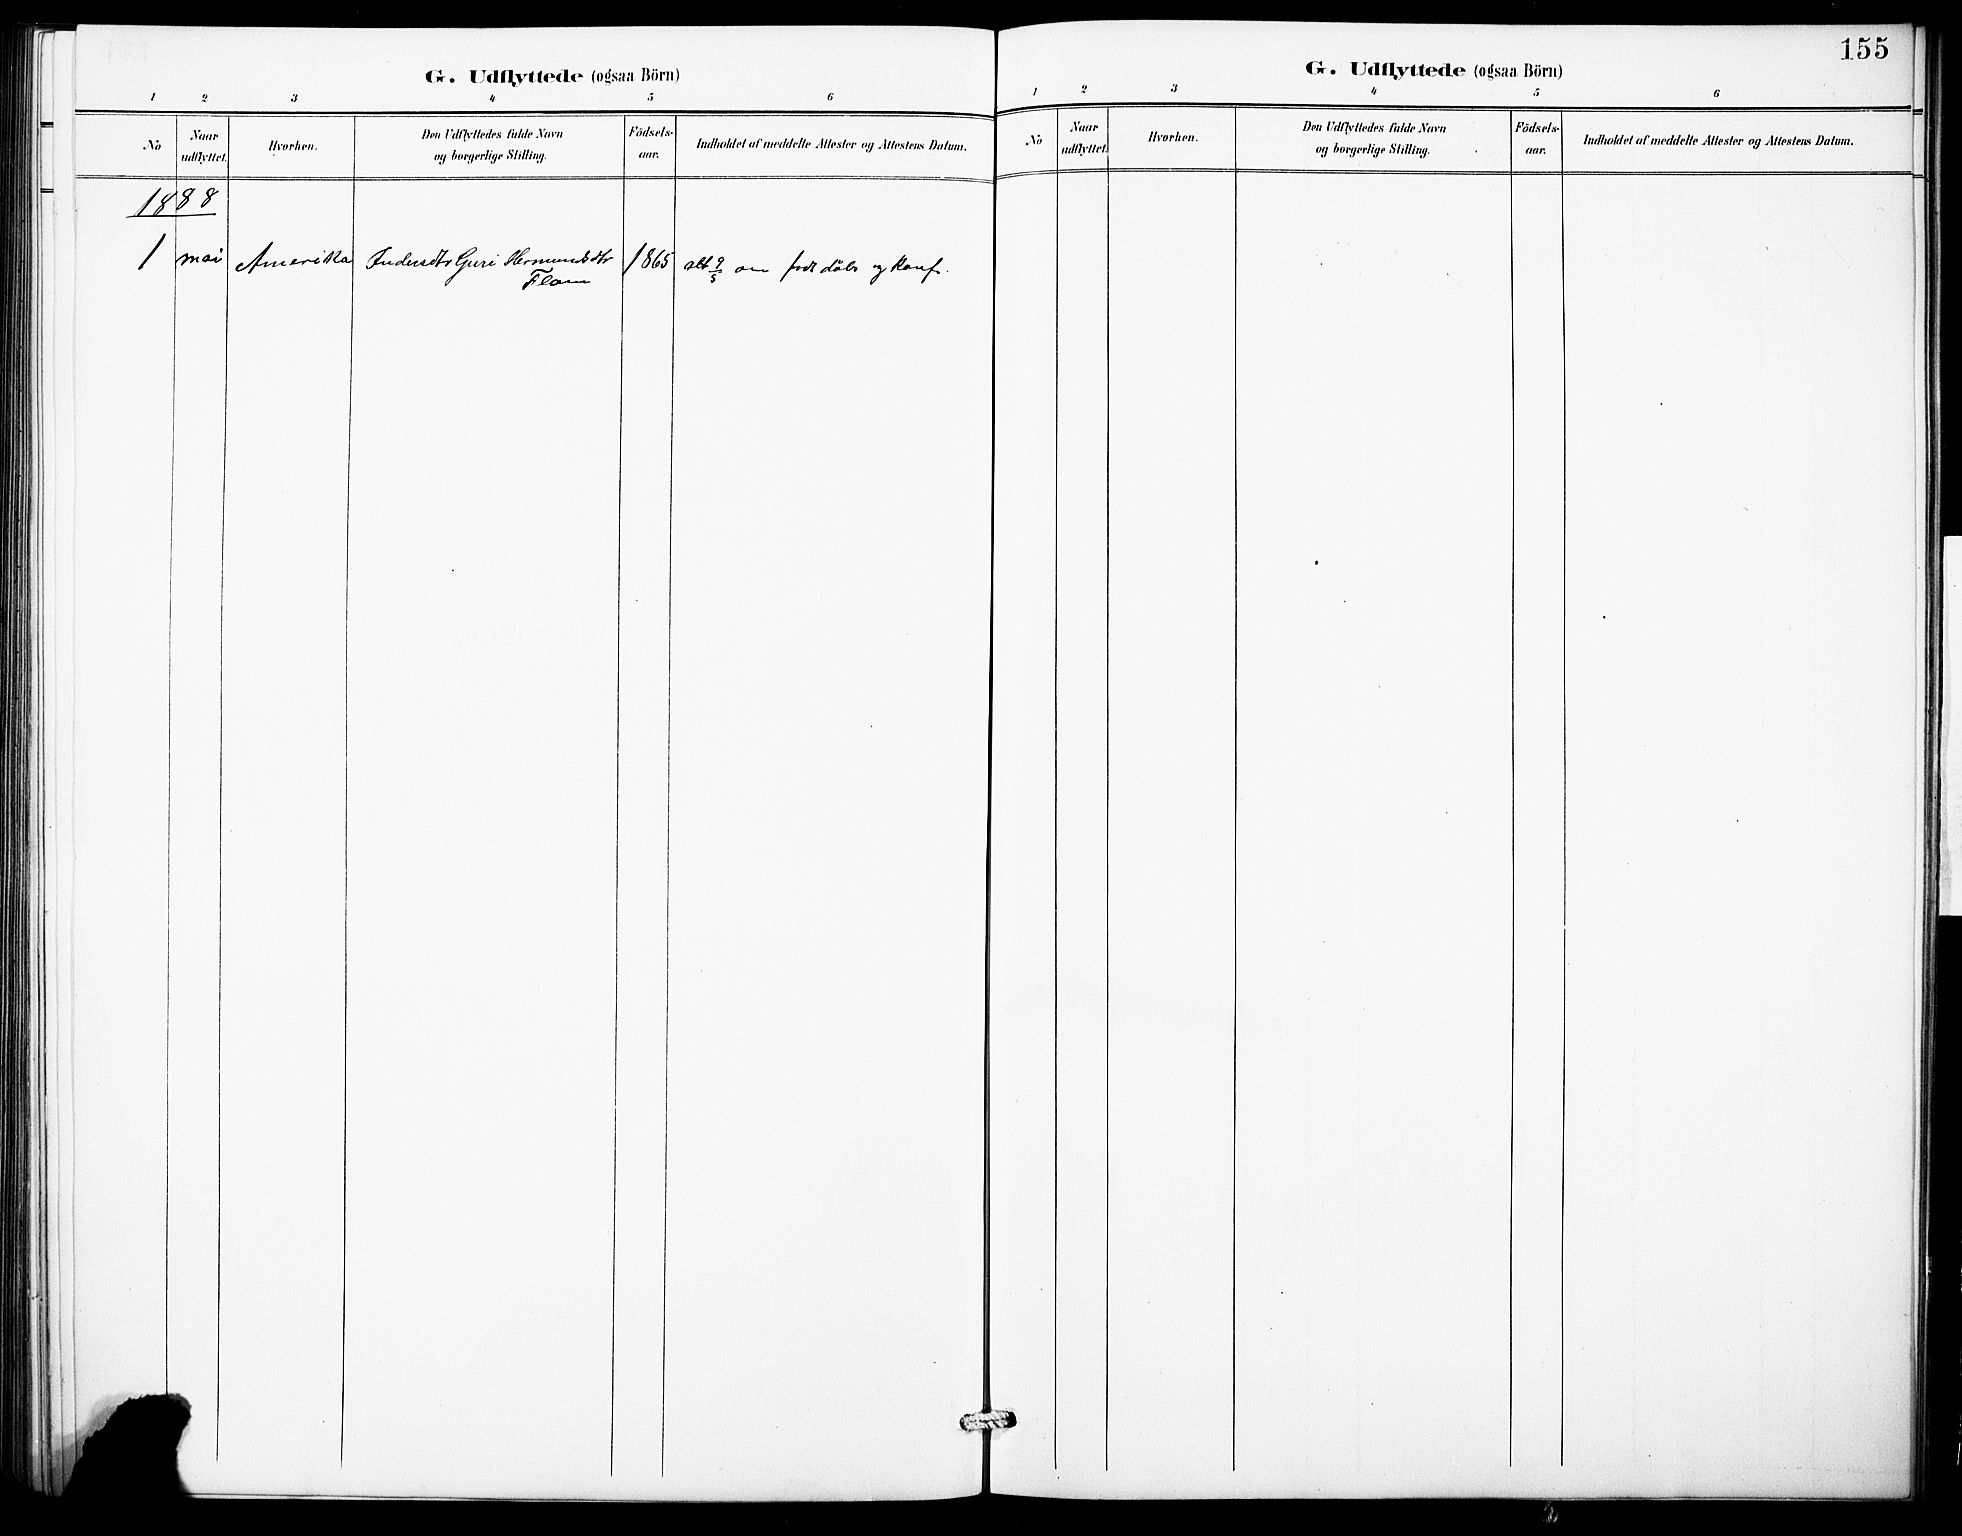 G. Udflyttede (ogsaa Börn)
1 2 3 4 5 6
No Naar udflyttet. Hvorhen. Den Udflyttedes fulde Navn og borgerlige Stilling. Födsels-aar. Indholdet af meddelte Attester og Attestens Datum.
1888
1 mai Amerika Guri Hermundsdtr 1865 att 9/5 om født døbt og konf.
Flam
155
G. Udflyttede (ogsaa Börn)
1 2 3 4 5 6
No Naar udflyttet. Hvorhen. Den Udflyttedes fulde Navn og borgerlige Stilling. Födsels-aar. Indholdet af meddelte Attester og Attestens Datum.